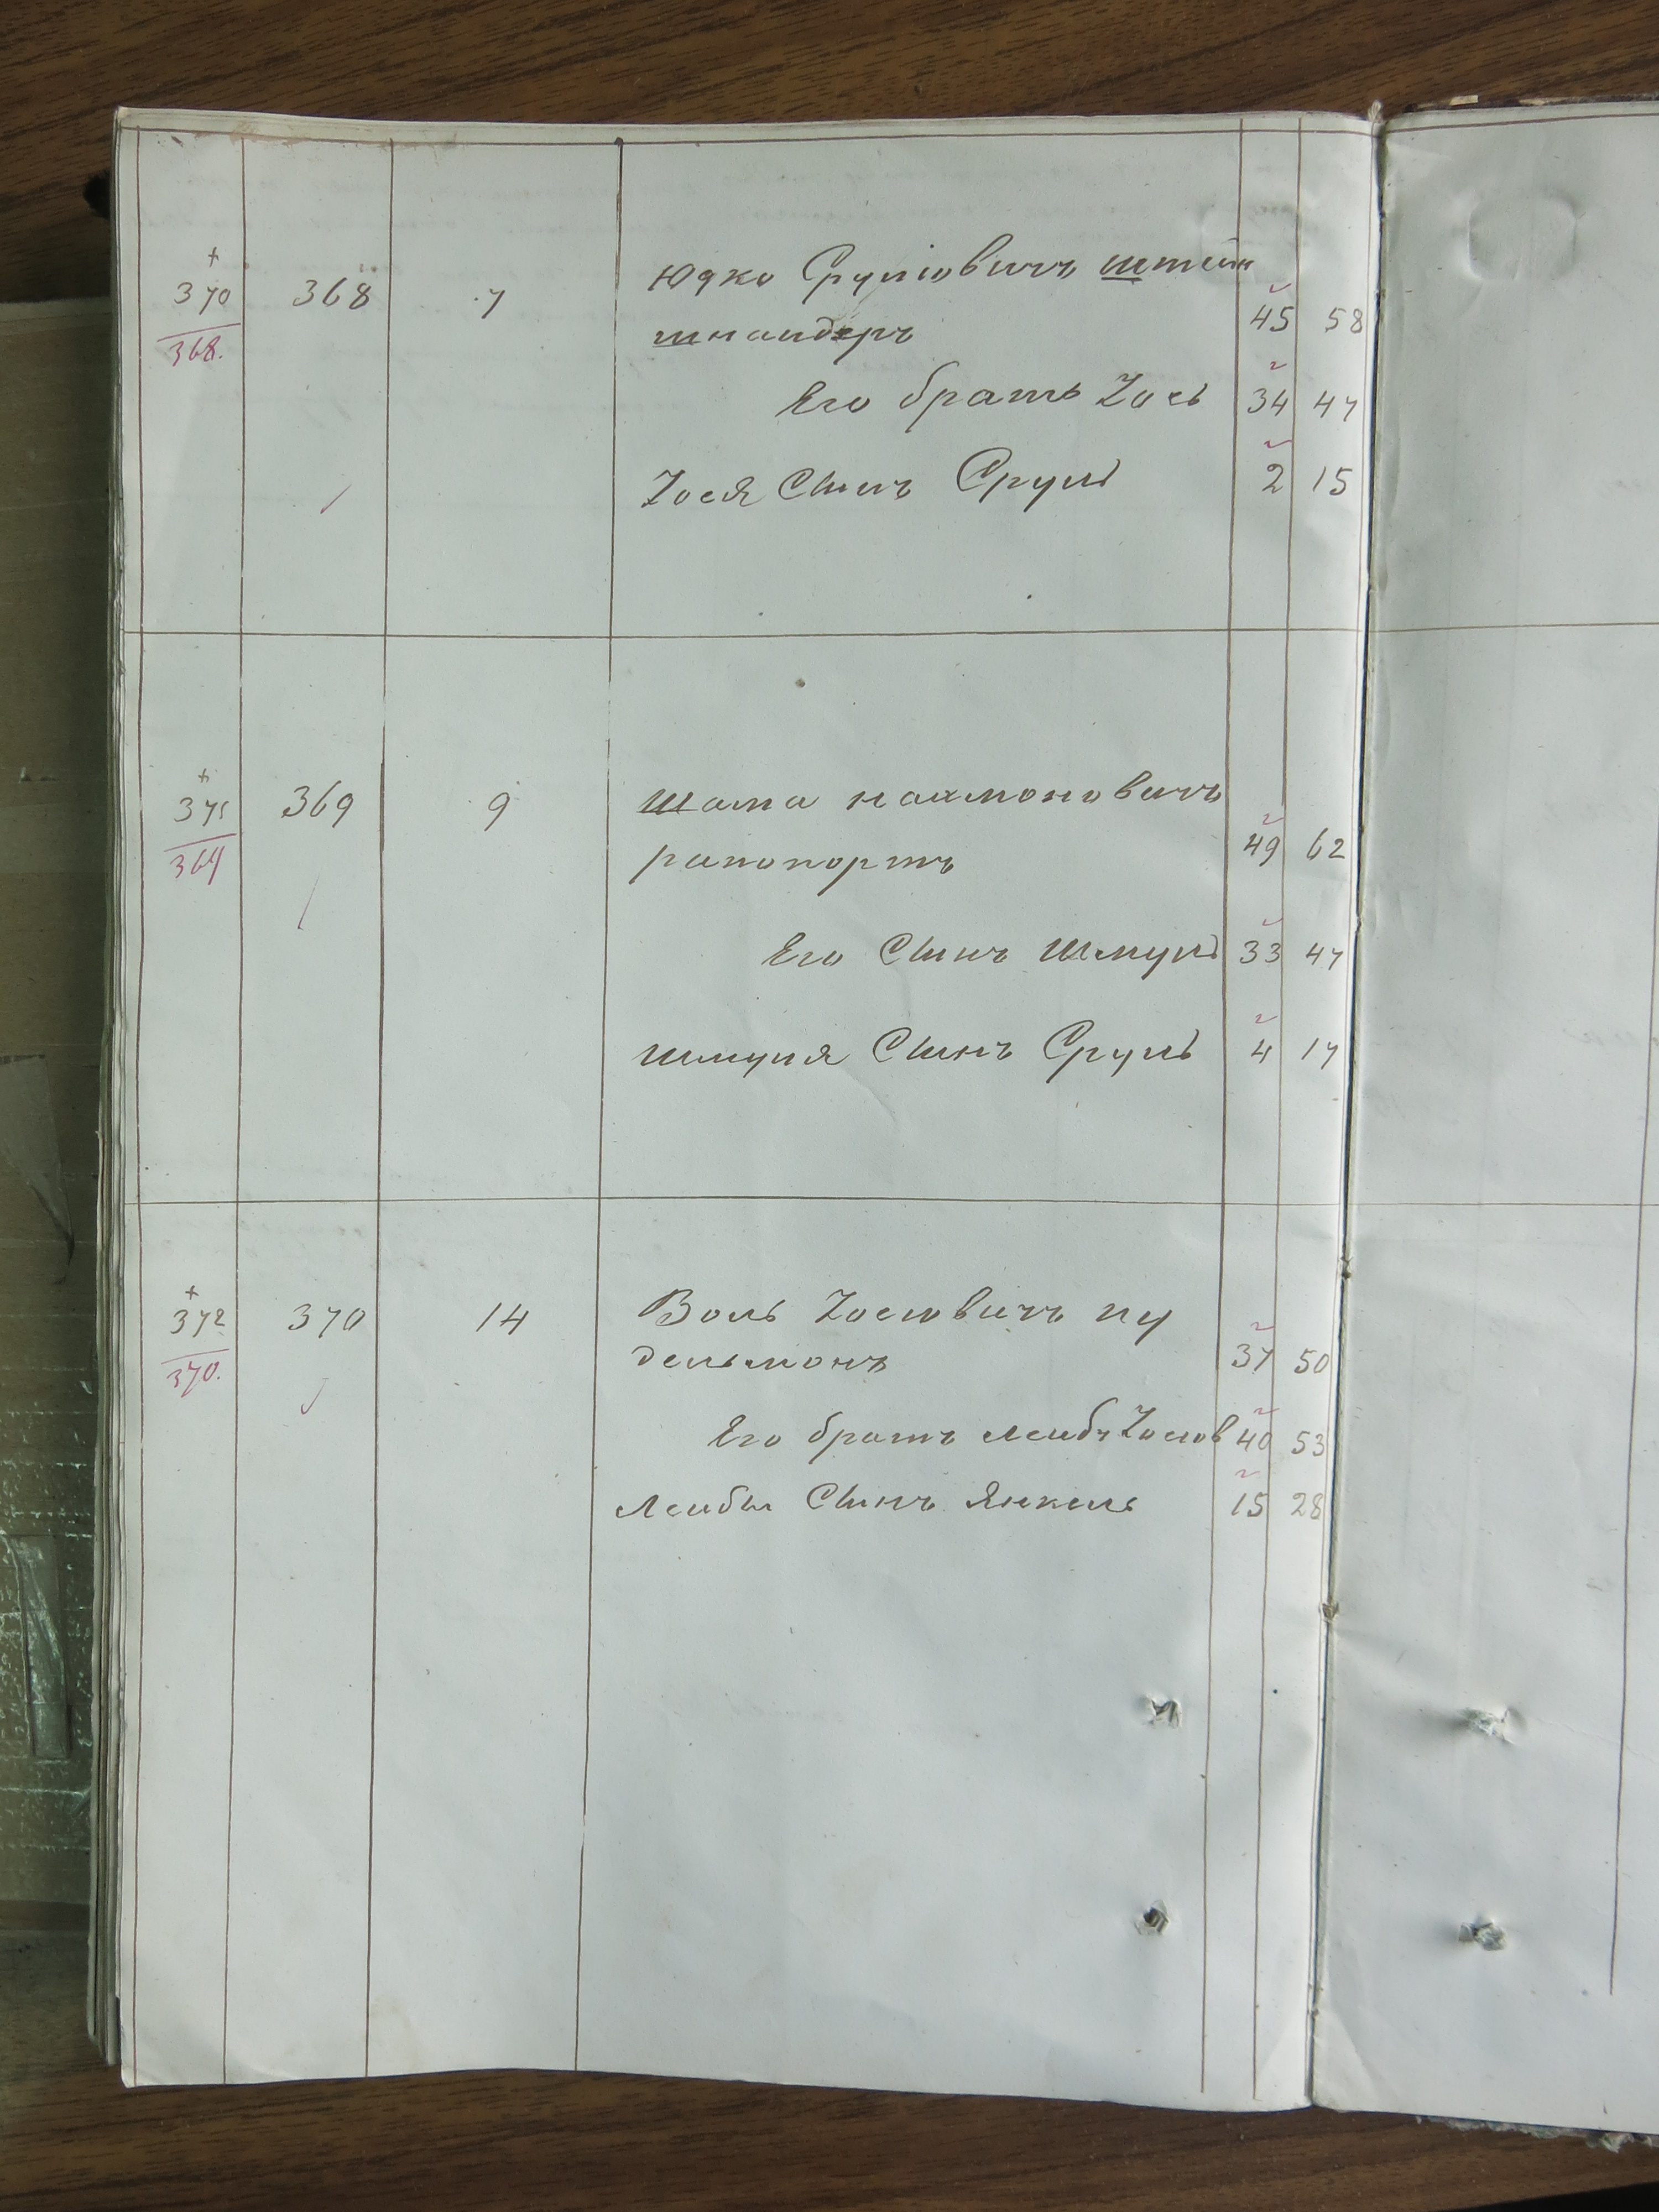 +
370 368 7 Юдко Срулiовичъ штейн
368. шнайдеръ 45 58
Его братъ Iось 34 47
Iося Сынъ Сруль 2 15
+
371 369 9 Шама нахмоновичъ
369 рапопортъ 49 62
Его Сынъ Шмуль 33 47
шмуля Сынъ Сруль 4 17
+
372 370 14 Воль Iосiовичъ пу
370. дельмонъ 37 50
Его братъ Лейбъ Iосiов 40 53
Лейбы Сынъ Янкель 15 28